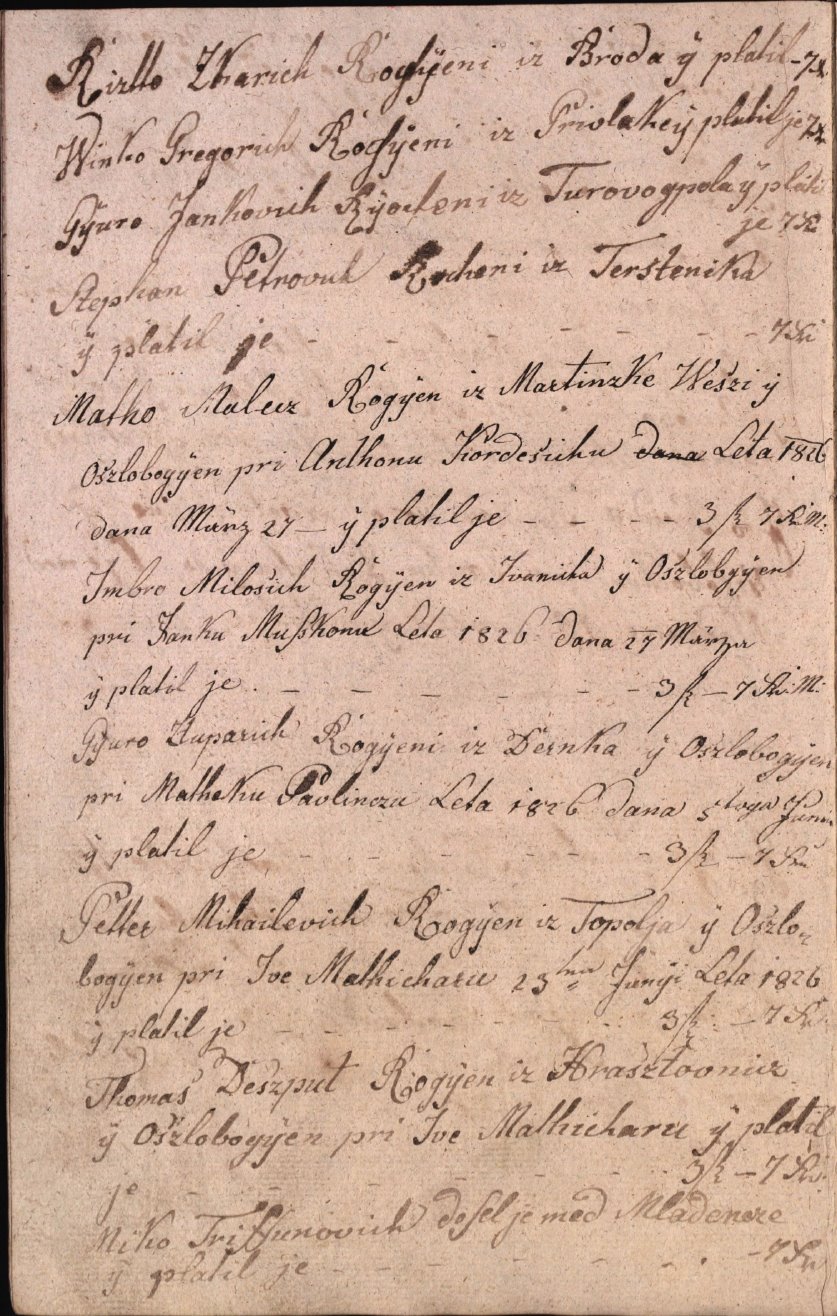 Riztto Zharich Rogyeni iz Broda ÿ platil - 7 X
Winko Gregorich Rogyeni iz Privlake ÿ platil je 7 X
Gÿuro Jankovich Rÿocheni iz Turovogpola ÿ platil
je 7 X
Stephan Petrovich Rocheni iz Terstenika
ÿ platil je - - - - - - - 7 Xr
Matko Malecz Rogÿen iz Martinzke Weszi ÿ
Oszlobogÿen pri Anthonu Kordesichu dana Leta 1826
dana März 27 — ÿ platil je - - - - 3 f 7 Xr M:
Imbro Milosich Rogÿen iz Ivanicha ÿ Oszlobgÿen
pri Janku Muskonu Leta 1826 dana 27 Märza
ÿ platil je - - - - - - 3 f — 7 Xr M:
Gÿuro Zuparich Rogÿeni iz Dernka ÿ Oszlobogÿen
pri Matheku Pavlinczu Leta 1826 dana 5 toga Junia
ÿ platil je - - - - - - 3 f — 7 Xr
Petter Mihailevich Rogÿen iz Topolja ÿ Oszlo-
bogÿen pri Ive Mathicharu 23 Junÿi Leta 1826
ÿ platil je - - - - - - 3 f — 7 Xr
Thomas Deszput Rogÿen iz Hrasztovnicz
ÿ Oszlobogÿen pri Ive Mathicharu ÿ platil
je - - - - - - 3 f — 7 Xr
Miko Triffunovich desel je med Mladencze
ÿ platil je - - - - - - 7 Xr